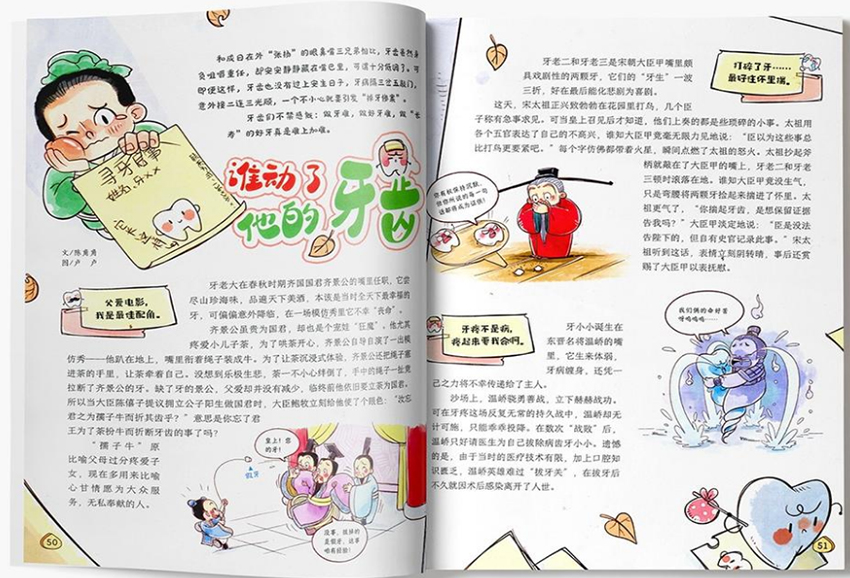 和成日在外“张扬”的眼鼻嘴三兄弟相比，牙齿虽然身
负咀嚼重任，却安安静静藏在嘴巴里，可谓十分低调了。可
即使这样，牙齿也没有过上安生日子，牙病隔三岔五敲门，
意外接二连三光顾，一个不小心就要引发“掉牙惨案”。
牙齿们不禁感叹：做牙难，做好牙难，做“长
寿”的好牙真是难上加难。
寻牙启事
姓名：牙××
谁动了
他的牙齿
文/陈角角
图/卢 卢
父爱电影，
我是最佳配角。
牙老大在春秋时期齐国国君齐景公的嘴里任职，它尝
尽山珍海味，品遍天下美酒，本该是当时全天下最幸福的
牙，可偏偏意外降临，在一场模仿秀里它不幸“丧命”。
齐景公虽贵为国君，却也是个宠娃“狂魔”。他尤其
疼爱小儿子荼，为了哄荼开心，齐景公自导自演了一出模
仿秀——他趴在地上，嘴里衔着绳子装成牛。为了让荼沉浸式体验，齐景公还把绳子塞
进荼的手里，让荼牵着自己。没想到乐极生悲，荼一不小心绊倒了，手中的绳子一扯竟
拉断了齐景公的牙。缺了牙的景公，父爱却并没有减少，临终前他依旧要立荼为国君。
所以当大臣陈僖子提议拥立公子阳生做国君时，大臣鲍牧立刻给他使了个眼色：“汝忘
君之为孺子牛而折其齿乎？”意思是你忘了君
王为了荼扮牛而折断牙齿的事了吗？
“孺子牛”原
比喻父母过分疼爱子
女，现在多用来比喻
心甘情愿为大众服
务，无私奉献的人。
皇上！您
的牙！
假牙
没事，拔掉的
是假牙，这事
咱有经验！
50
打碎了牙……
最好往怀里揣。
牙老二和牙老三是宋朝大臣甲嘴里颇
具戏剧性的两颗牙，它们的“牙生”一波
三折，好在最后能化悲剧为喜剧。
这天，宋太祖正兴致勃勃在花园里打鸟，几个臣
子称有急事求见。可当皇上召见后才知道，他们上奏的都是些琐碎的小事。太祖用
各个五官表达了自己的不高兴，谁知大臣甲竟毫无眼力见地说：“臣以为这些事总
比打鸟更要紧吧。”每个字仿佛都带着火星，瞬间点燃了太祖的怒火。太祖抄起斧
柄就敲在了大臣甲的嘴上，牙老二和牙老
三顿时滚落在地。谁知大臣甲竟没生气，
只是弯腰将两颗牙捡起来揣进了怀里。太
祖更气了，“你揣起牙齿，是想保留证据
告我吗？”大臣甲淡定地说：“臣是没法
告陛下的，但自有史官记录此事。”宋太
祖听到这话，表情立刻阴转晴，事后还赏
赐了大臣甲以表抚慰。
你有权保持沉默，
但你所说的每一句
话都将成为证供！
牙疼不是病，
疼起来要我命啊。
牙小小诞生在
东晋名将温峤的嘴
里，它生来体弱，
牙病缠身，还凭一
己之力将不幸传递给了主人。
沙场上，温峤骁勇善战，立下赫赫战功。
可在牙疼这场反复无常的持久战中，温峤却无
计可施，只能乖乖投降。在数次“战败”后，
温峤只好请医生为自己拔除病齿牙小小。遗憾
的是，由于当时的医疗技术有限，加上口腔知
识匮乏，温峤英雄难过“拔牙关”，在拔牙后
不久就因术后感染离开了人世。
我们俩的命好苦
呀呜呜呜……
51